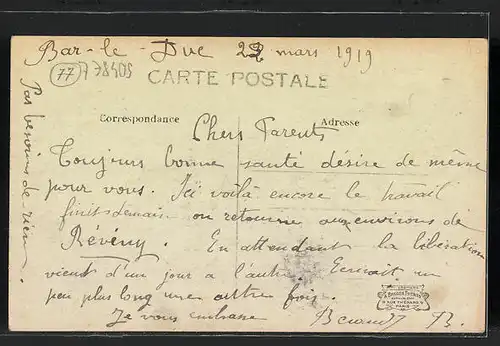 Bar-le-Duc 22 mars 1919
77
A 78405
CARTE POSTALE
Correspondance
Adresse
Chers Parents
Toujours bonne santé désire de même
pour vous. Ici voilà encore le travail
finit demain on retourne aux environs de
Révény. En attendant la libération
vient d'un jour a l'autre. Ecrirait un
peu plus long une arttre fois.
Je vous embrasse B.
Pas besoins de rien
PARIS